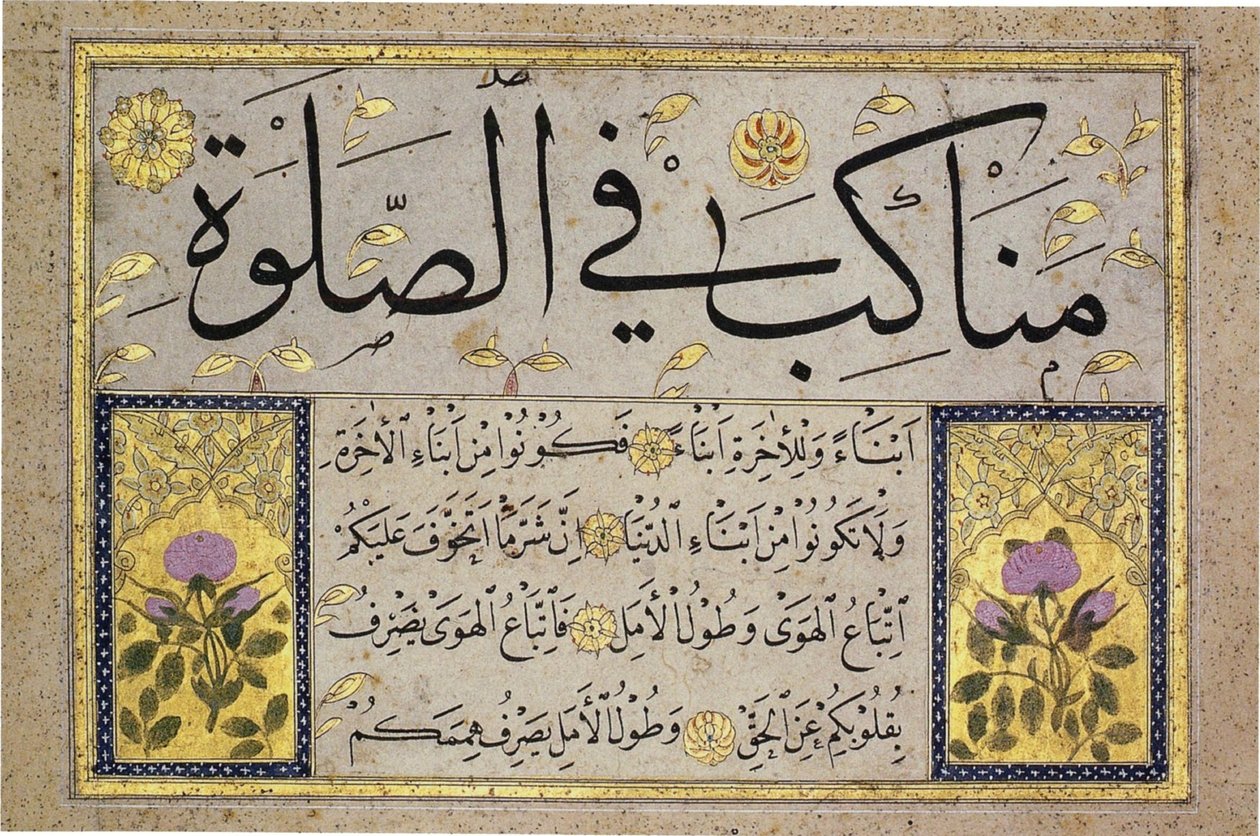 مَنَاكِبَ فِي الصَّلٰوةِ
اَبْنَاءً وَلِلْاٰخِرَةِ اَبْنَاءً فَكُونُوا مِنْ اَبْنَاءِ الْاٰخِرَةِ
وَلَا تَكُونُوا مِنْ اَبْنَاءِ الدُّنْيَا اِنَّ شَرَّ مَا اَتَخَوَّفُ عَلَيْكُمْ
اِتِّبَاعُ الْهَوٰى وَطُولُ الْأَمَلِ فَاتِّبَاعُ الْهَوٰى يَصْرِفُ
بِقُلُوبِكُمْ عَنِ الْحَقِّ وَطُولُ الْأَمَلِ يَصْرِفُ هِمَمَكُمْ